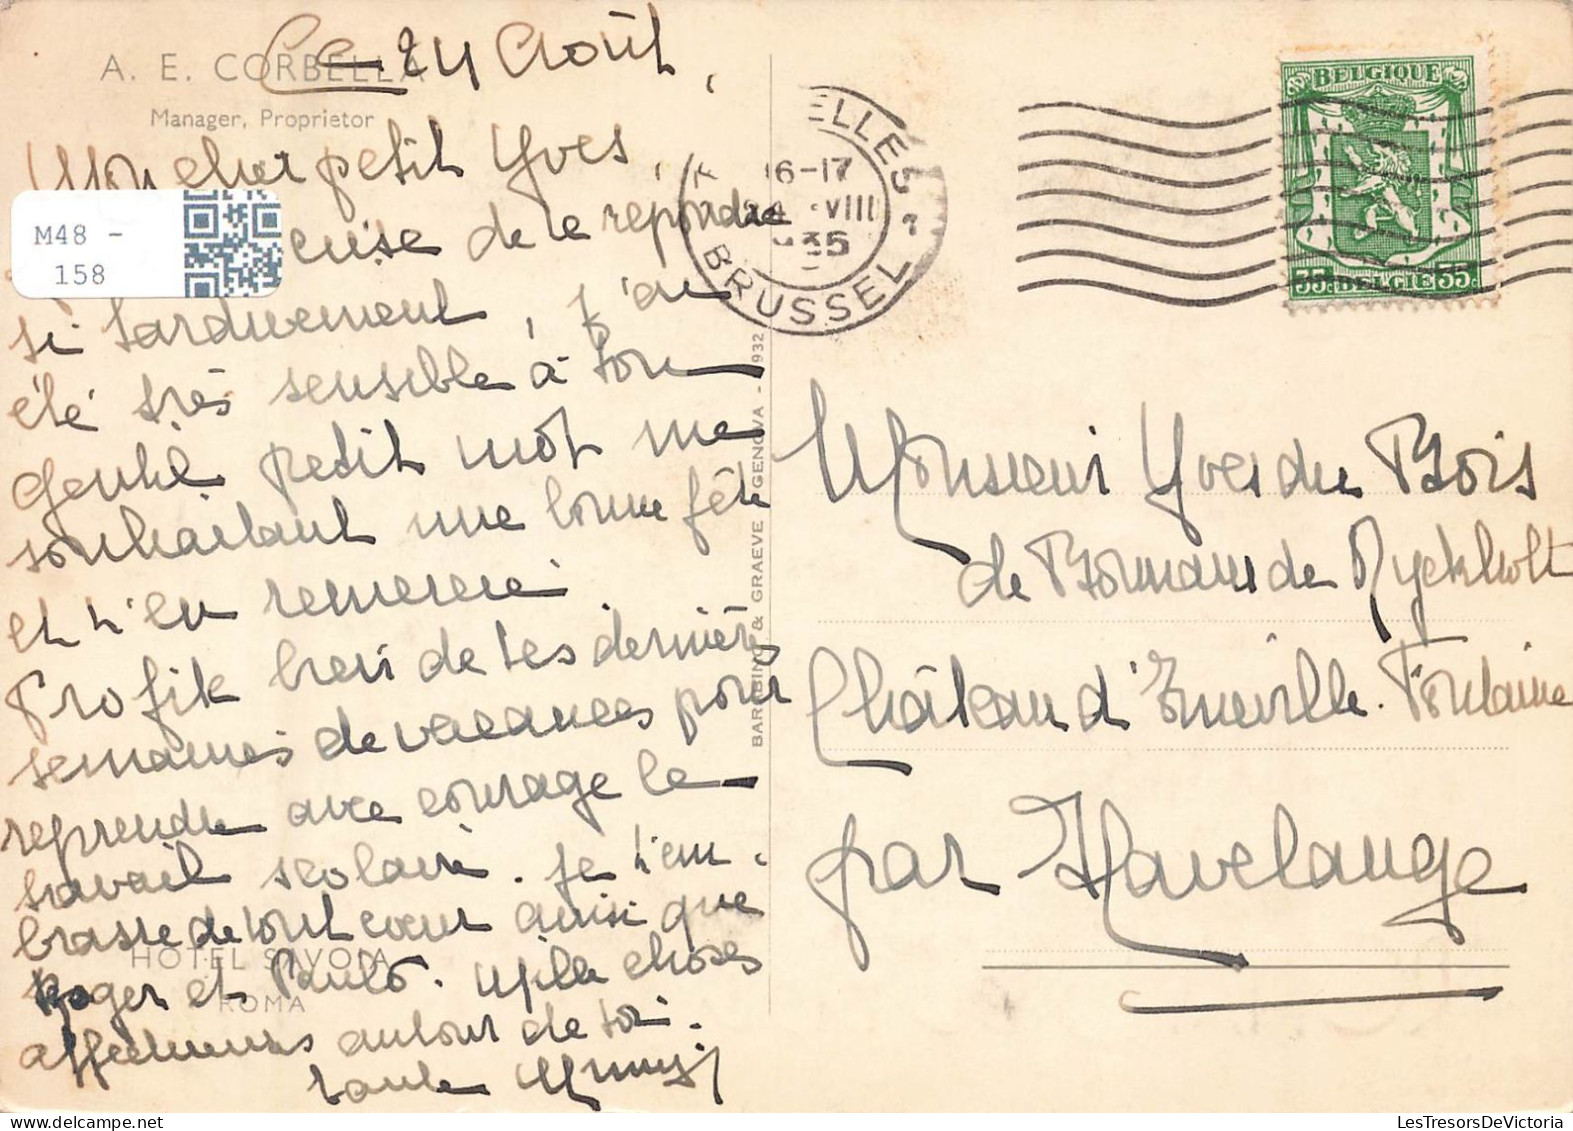 A. E. CORBELLA
Manager, Proprietor
Ce 24 Août,
Mon cher petit Yves,
M48 -
158
de te répondre
si tardivement, j'ai
été très sensible à ton
gentil petit mot me
souhaitant une bonne fête
et t'en remercie
Profite bien de tes dernières
semaines de vacances pour
reprendre avec courage le
travail scolaire. Je t'em-
brasse de tout cœur ainsi que
Roger et Paulo. Mille choses
affectueuses autour de toi.
tante
HOTEL SAVOIA
ROMA
BARABINO & GRAEVE GENOVA - 1932
ELLES
16-17
24 VIII
1935
BRUSSEL
BELGIQUE
35c BELGIE 35c
Monsieur Yves du Bois
de Bormans de Ryckholt
Château d'Emeville. Fontaine
par Havelange
LesTresorsDeVictoria.com